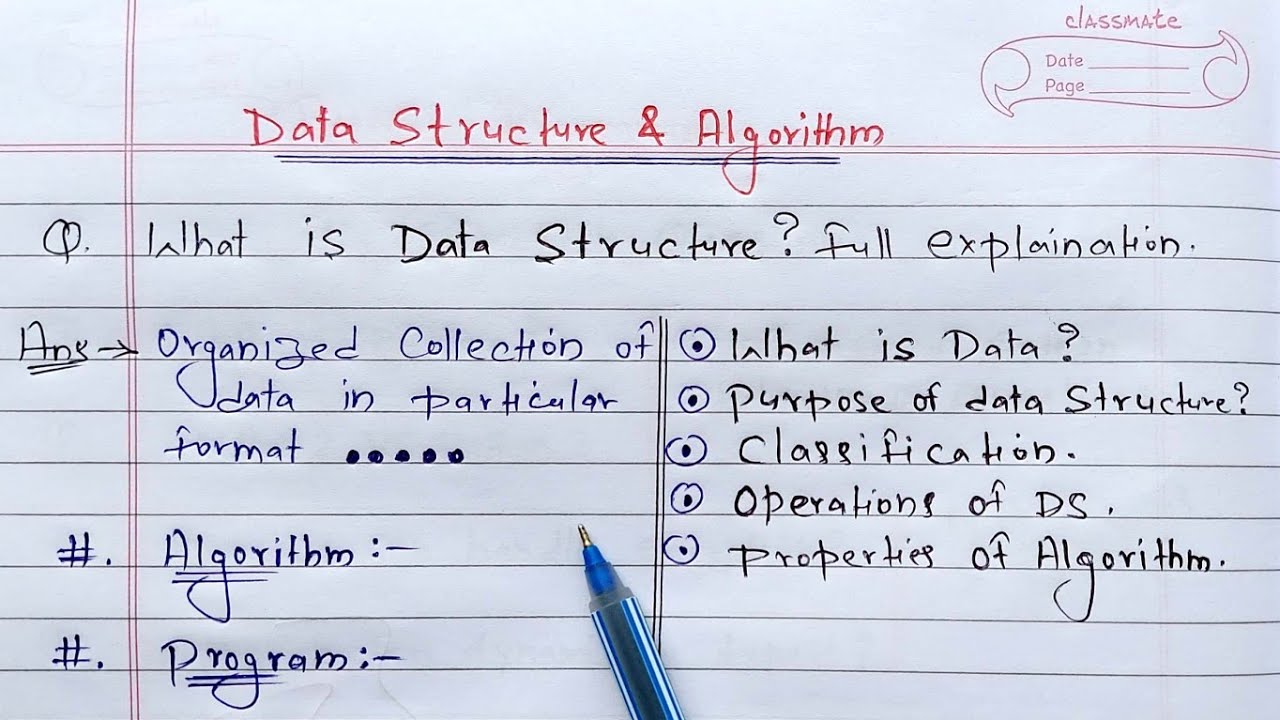 classmate
Date
Page
Data Structure & Algorithm
Q. What is Data Structure? full explaination.
Ans → Organized Collection of
data in particular
format •••••
#. Algorithm:-
#. Program:-
What is Data?
Purpose of data Structure?
Classification.
Operations of DS.
Properties of Algorithm.